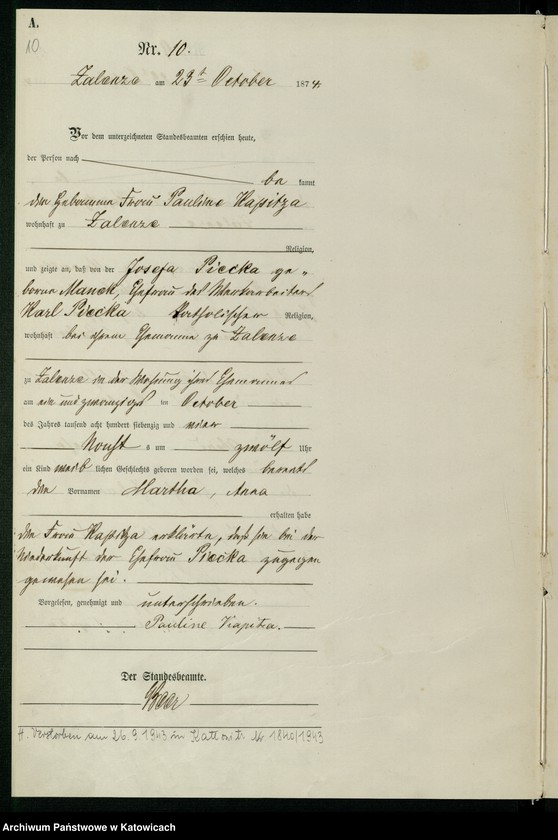 A.
10
Nr. 10.
Zalenze am 23t October 1874.
Vor dem unterzeichneten Standesbeamten erschien heute,
der Person nach
be kannt
die Hebamme Frau Pauline Kapitza
wohnhaft zu Zalenze
Religion,
und zeigte an, daß von der Josefa Piecka ge„
borne Manek, Ehefrau des
Karl Piecka katholischer Religion,
wohnhaft bei ihrem Ehemanne zu Zalenze
zu Zalenze in der Wohnung ihres Ehemannes
am ein und zwanzigsten October
des Jahres tausend acht hundert siebenzig und vier
Nachts um zwölf Uhr
ein Kind weib lichen Geschlechts geboren worden sei, welches bereits
den Vornamen Martha, Anna
erhalten habe
Die Frau Kapitza erklärte, daß sie bei der
Niederkunft der Ehefrau Piecka zugegen
gewesen sei.
Vorgelesen, genehmigt und unterschrieben.
Pauline Kapitza.
Der Standesbeamte.
H. Verstorben am 26.9.1943 in Kattowitz Nr 1840/1943
Archiwum Państwowe w Katowicach